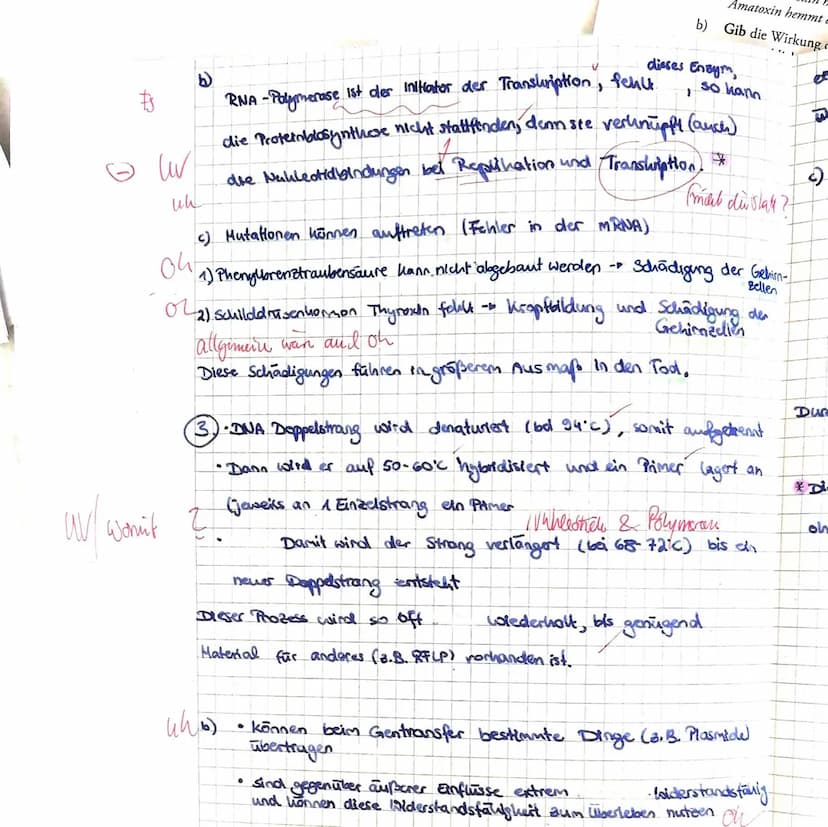 Amatoxin hemmt
b) Gib die Wirkung
b)
dieses Enzym,
RNA-Polymerase ist der Initiator der Transkription, fehlt , so kann
die Proteinbiosynthese nicht stattfinden, denn sie verknüpft (auch)
uv
die Nukleotidbindungen bei Replikation und Transkription. *
uh
findet die statt?
c) Mutationen können auftreten (Fehler in der mRNA)
oh
1) Phenylbrenztraubensäure kann nicht abgebaut werden → Schädigung der Gehirn-
zellen
2) Schilddrüsenhormon Thyroxin fehlt → Kropfbildung und Schädigung der
Gehirnzellen
allgemein wär auch oh
Diese Schädigungen führen in größerem Ausmaß in den Tod.
3. • DNA Doppelstrang wird denaturiert (bei 94°C), somit aufgetrennt
• Dann wird er auf 50-60°C hybridisiert und ein Primer lagert an
(jeweils an 1 Einzelstrang ein Primer
uv/womit ?
Nukleotide & Polymerase
• Damit wird der Strang verlängert (bei 68-72°C) bis ein
neuer Doppelstrang entsteht
Dieser Prozess wird so oft wiederholt, bis genügend
Material für anderes (z.B. RFLP) vorhanden ist.
uh b) • können beim Gentransfer bestimmte Dinge (z.B. Plasmide)
übertragen
• sind gegenüber äußerer Einflüsse extrem widerstandsfähig
und können diese Widerstandsfähigkeit zum Überleben nutzen oh
c)
Dur
* Di